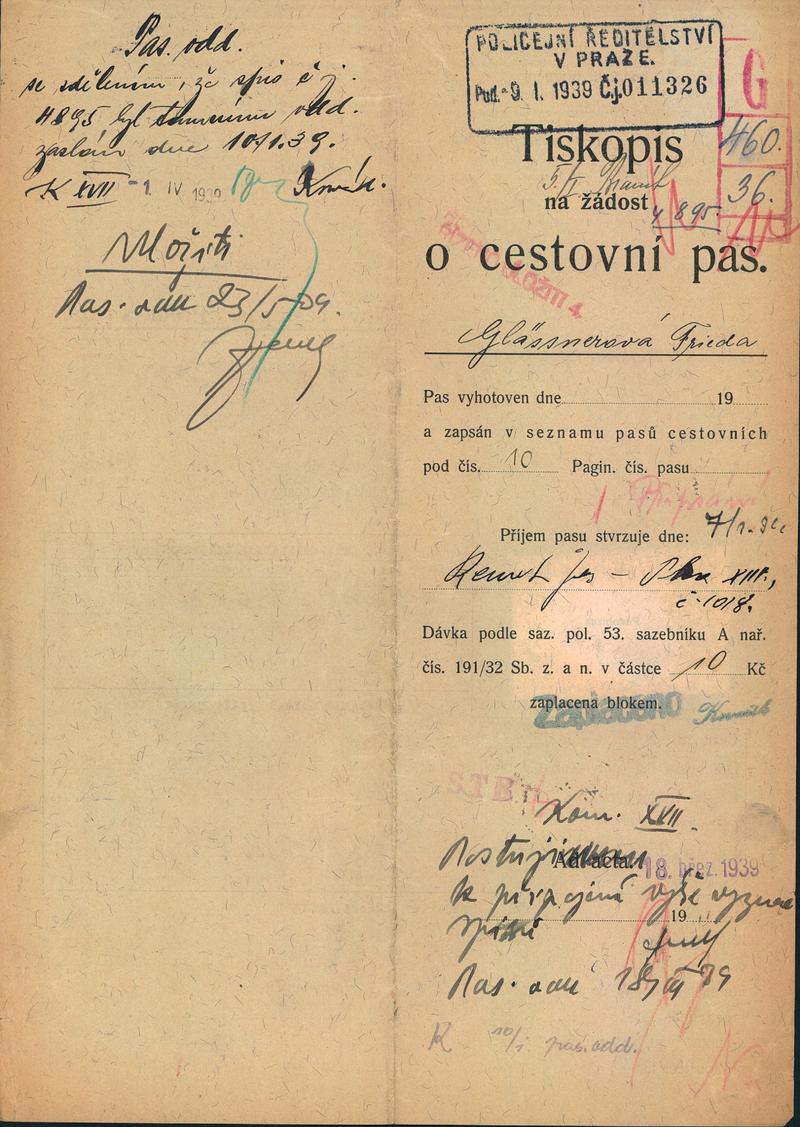 Pas. odd.
se sdělením, že spis čj.
4895 byl tamnímu odd.
zaslán dne 10/1.39.
K XVII - 1. IV 1939
Pas. odd. 23/5 39.
POLICEJNÍ ŘEDITELSTVÍ
V PRAZE.
Pod. - 9. I. 1939 Čj. 011326
G
460.
36.
Tiskopis
na žádost
4895
o cestovní pas.
Glässnerová Frieda
Pas vyhotoven dne 19
a zapsán v seznamu pasů cestovních
pod čís. 10 Pagin. čís. pasu
Příjem pasu stvrzuje dne:
XIII.,
č. 1018.
Dávka podle saz. pol. 53. sazebníku A nař.
čís. 191/32 Sb. z. a n. v částce 10 Kč
zaplacena blokem.
Zaplaceno
Kom. XVII.
Postupuji
Ad acta. 18. břez. 1939
k připojení výše
19
spisu
Pas. odd. 18/III 39
K 10/1. pas. odd.